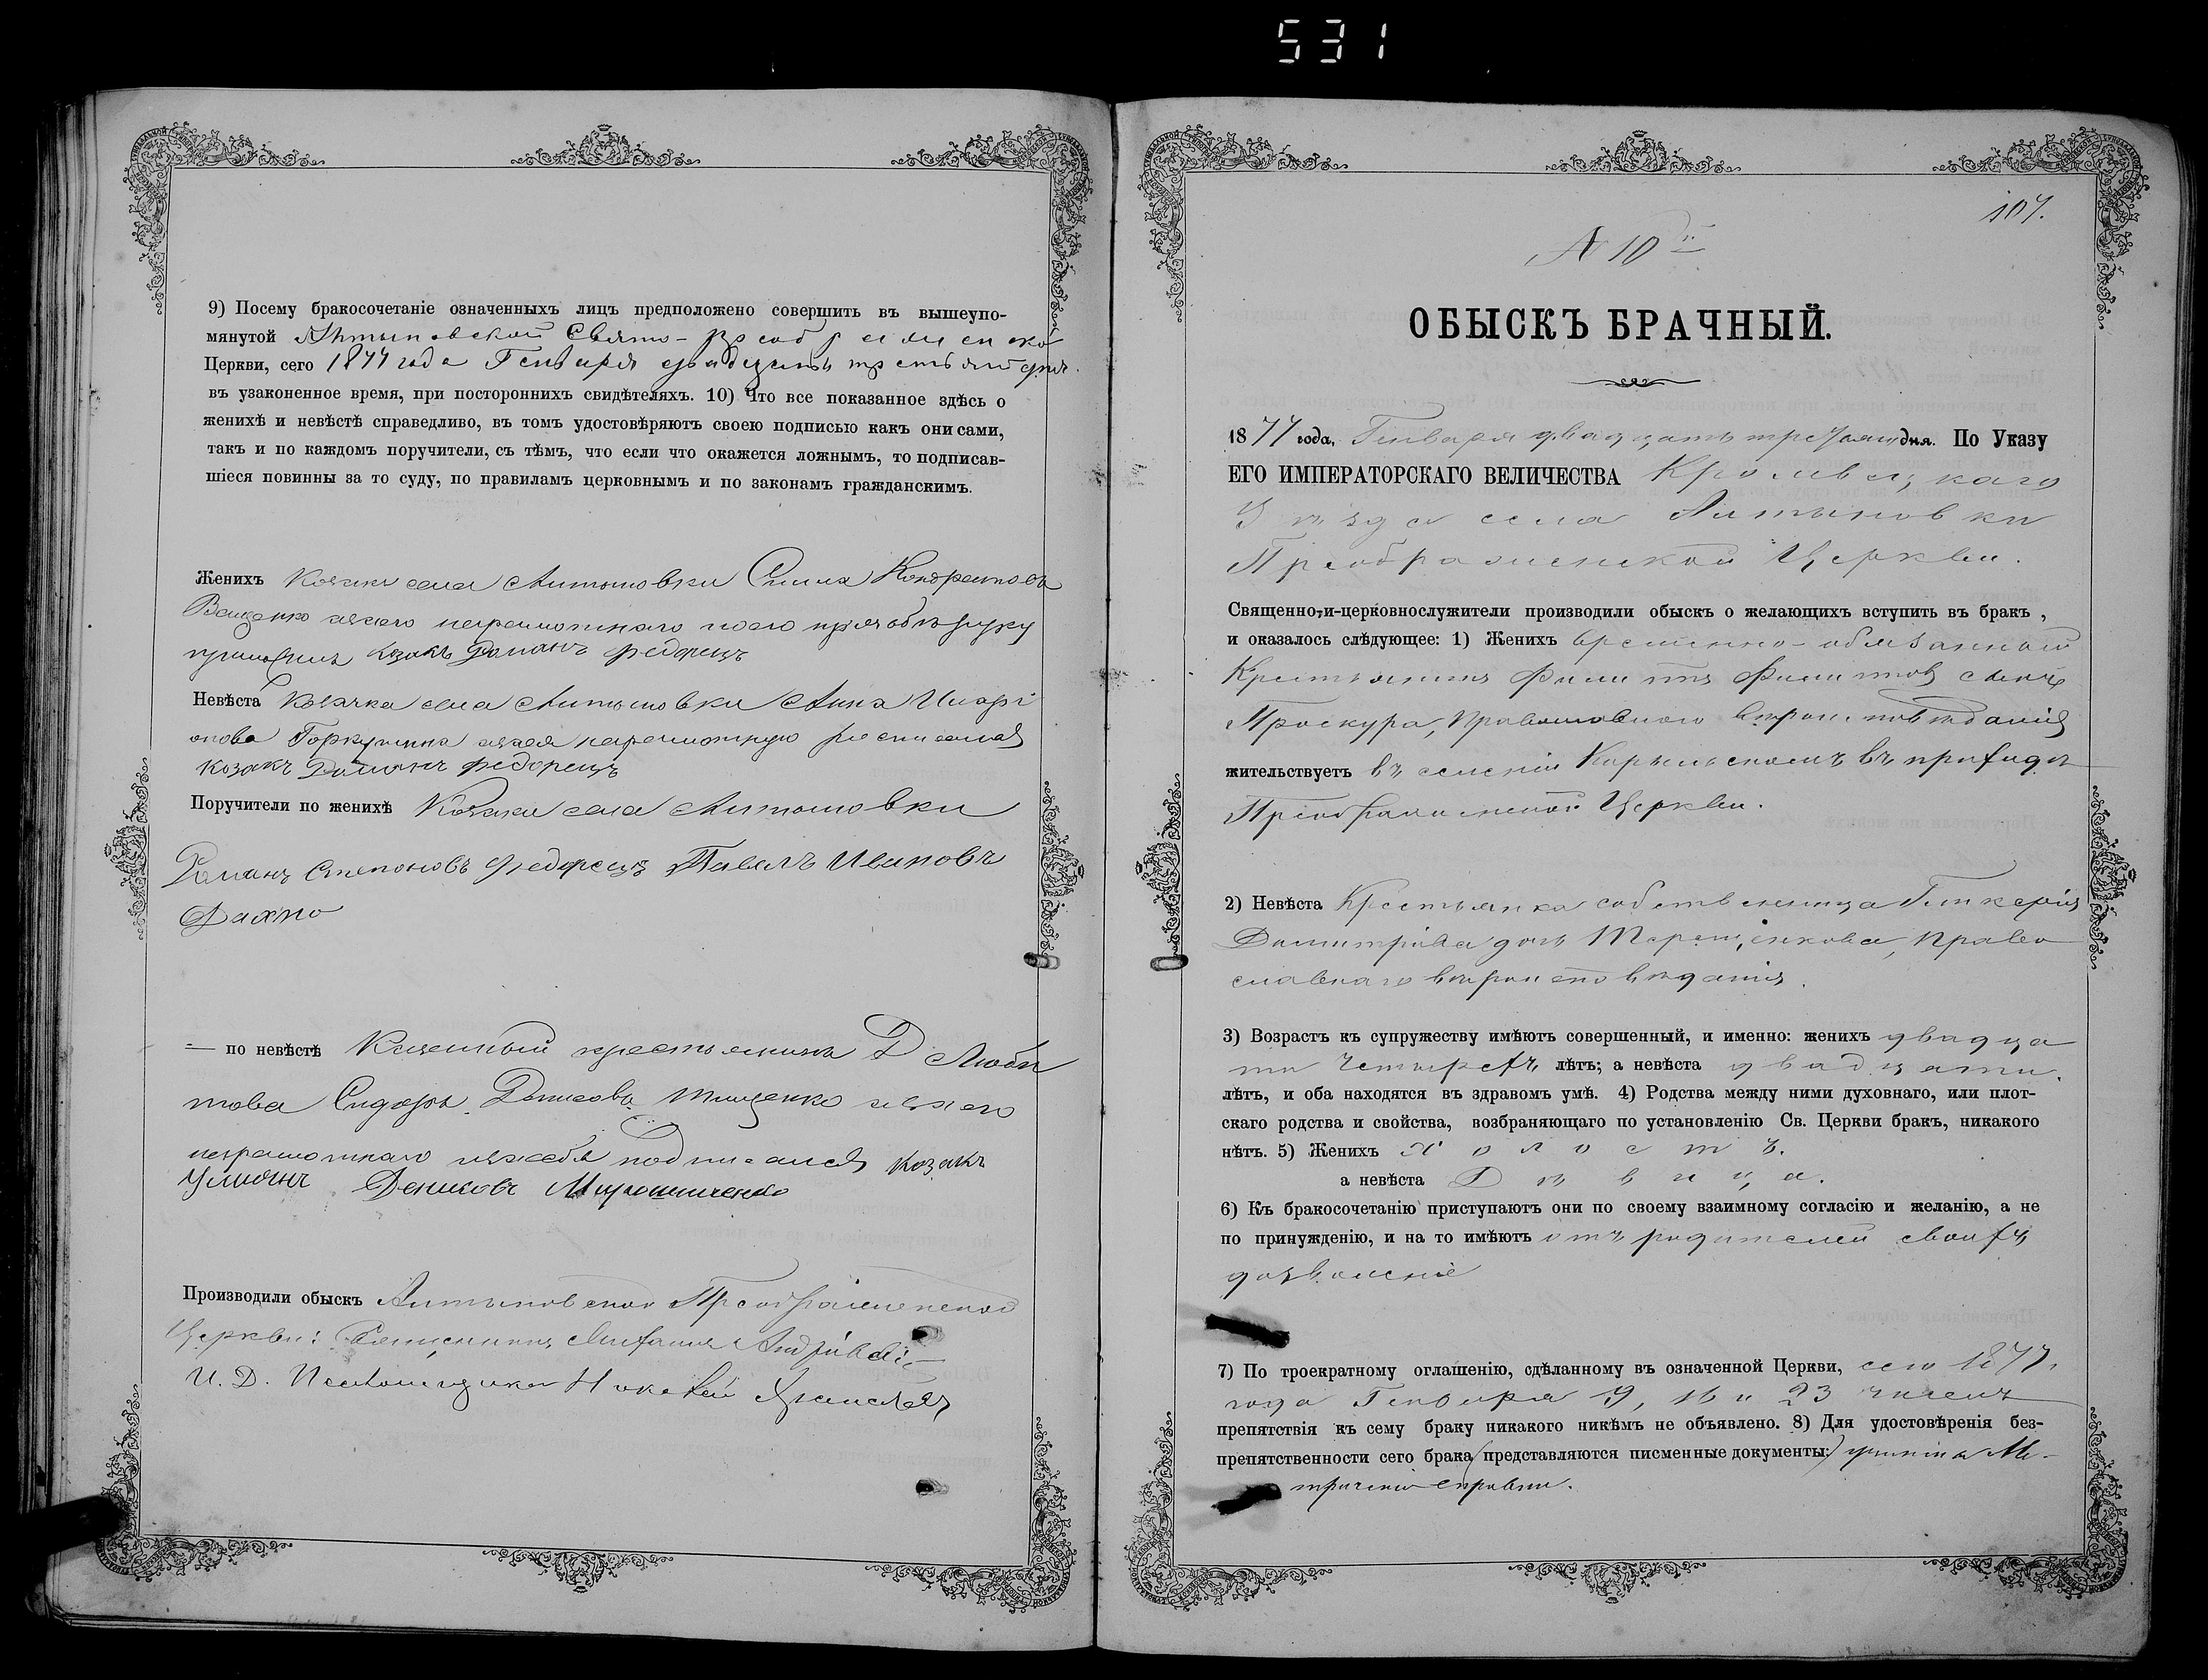 531
9) Посему бракосочетаніе означенныхъ лицъ предположено совершить въ вышеупо-
мянутой Алтыновской Свято-преображенской
Церкви, сего 1877 года Генваря двадцать третьяго дня.
въ узаконенное время, при постороннихъ свидѣтеляхъ. 10) Что все показанное здѣсь о
женихѣ и невѣстѣ справедливо, въ томъ удостовѣряютъ своею подписью какъ они сами,
такъ и по каждомъ поручители, съ тѣмъ, что если что окажется ложнымъ, то подписав-
шіеся повинны за то суду, по правиламъ церковнымъ и по законамъ гражданскимъ.
Женихъ Козакъ села Алтыновки Кондратовъ
Ващенко неграмотнаго руку
приложилъ козакъ Романъ Федорецъ
Невѣста Козачка села Алтыновки Анна Иларі
онова неграмотную росписался
козакъ Романъ Федорецъ
Поручители по женихѣ Козаки села Алтыновки
Романъ Степоновъ Федорецъ Павелъ Ивановъ
— по невѣстѣ Казенный крестьянинъ Д Люби
това Сидоръ Денисовъ Тищенко
неграмотнаго подписался козакъ
Денисовъ Мирошниченко
Производили обыскъ Алтыновской Преображенской
Церкви: Священникъ Михаилъ
И. Д. Псаломщика
107.
N 10й
ОБЫСКЪ БРАЧНЫЙ.
1877 года, Генваря двадцать третьяго дня. По Указу
ЕГО ИМПЕРАТОРСКАГО ВЕЛИЧЕСТВА Кролевецкаго
Уѣзда села Алтыновки
Преображенской Церкви.
Священно-и-церковнослужители производили обыскъ о желающихъ вступить въ бракъ,
и оказалось слѣдующее: 1) Женихъ временно-обязанный
Крестьянинъ Филиппъ Филипповъ сынъ
Проскура, Православнаго вѣроисповѣданія
жительствуетъ въ селеніи въ приходѣ
Преображенской Церкви.
2) Невѣста Крестьянка собственница Гликерія
Димитріева дочь Терещенкова, право
славнаго вѣроисповѣданія.
3) Возрастъ къ супружеству имѣютъ совершенный, и именно: женихъ двадца
ти четырехъ лѣтъ; а невѣста двадцати.
лѣтъ, и оба находятся въ здравомъ умѣ. 4) Родства между ними духовнаго, или плот-
скаго родства и свойства, возбраняющаго по установленію Св. Церкви бракъ, никакого
нѣтъ. 5) Женихъ Холостъ.
а невѣста Дѣвица.
6) Къ бракосочетанію приступаютъ они по своему взаимному согласію и желанію, а не
по принужденію, и на то имѣютъ отъ родителей своихъ
дозволеніе
7) По троекратному оглашенію, сдѣланному въ означенной Церкви, сего 1877.
года Генваря 9, 16 и 23 чиселъ
препятствія къ сему браку никакого никѣмъ не объявлено. 8) Для удостовѣренія без-
препятственности сего брака (представляются писменные документы:) Ме-
трическіе справки.